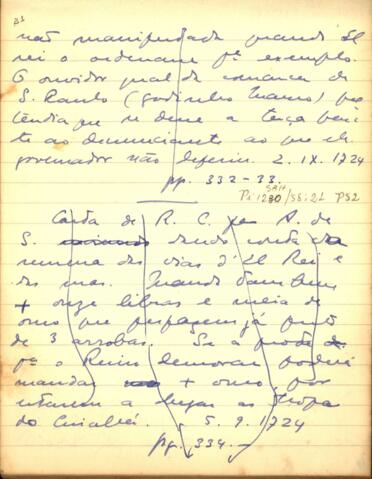 não manifestada quando El
rei o ordenava pª exemplo.
O ouvidor geral da comarca de
S. Paulo (Godinho Manso) pre
tendia que se desse a terça parte
te ao denunciante ao que o
governador não deferiu. 2. IX. 1724
pp. 332-33.
SRH
Pi 1230/SS:21 PS2
Carta de R. C. pª A. de
S. dando conta da
remessa das vias d'El Rei e
das mas. Manda tambem
+ onze libras e meia de
ouro que perfazem já perto
de 3 arrobas. Se a frota
pª o Reino demorar poderá
mandar + ouro, por
estarem a chegar as tropas
do Cuiabá. 5. 9. 1724
pg. 334.-